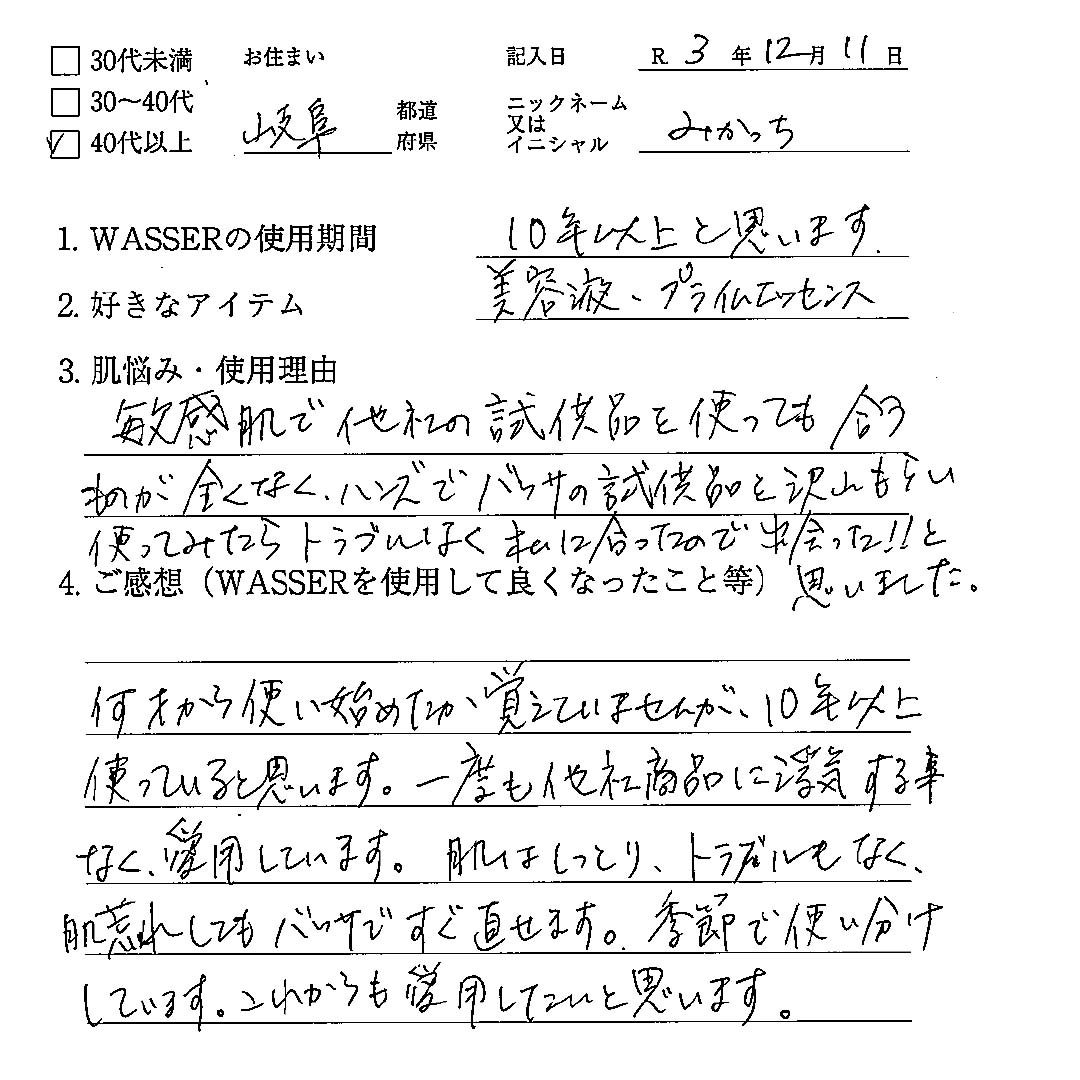 30代未満 お住まい 記入日 R 3 年 12 月 11 日
30〜40代 岐阜 都道 ニックネーム みかっち
40代以上 府県 又は
イニシャル
1. WASSERの使用期間 10年以上と思います.
2. 好きなアイテム 美容液、プライムエッセンス
3. 肌悩み・使用理由
敏感肌で他社の試供品を使っても合う
ものが全くなく、ハンズでバッサの試供品を沢山もらい
使ってみたらトラブルなく私に合ったので出会った!!と
4. ご感想（WASSERを使用して良くなったこと等） 思いました。
何才から使い始めたか覚えていませんが、10年以上
使っていると思います。一度も他社商品に浮気する事
なく、愛用しています。肌はしっとり、トラブルもなく、
肌荒れしてもバッサですぐ直せます。季節で使い分け
しています。これからも愛用したいと思います。